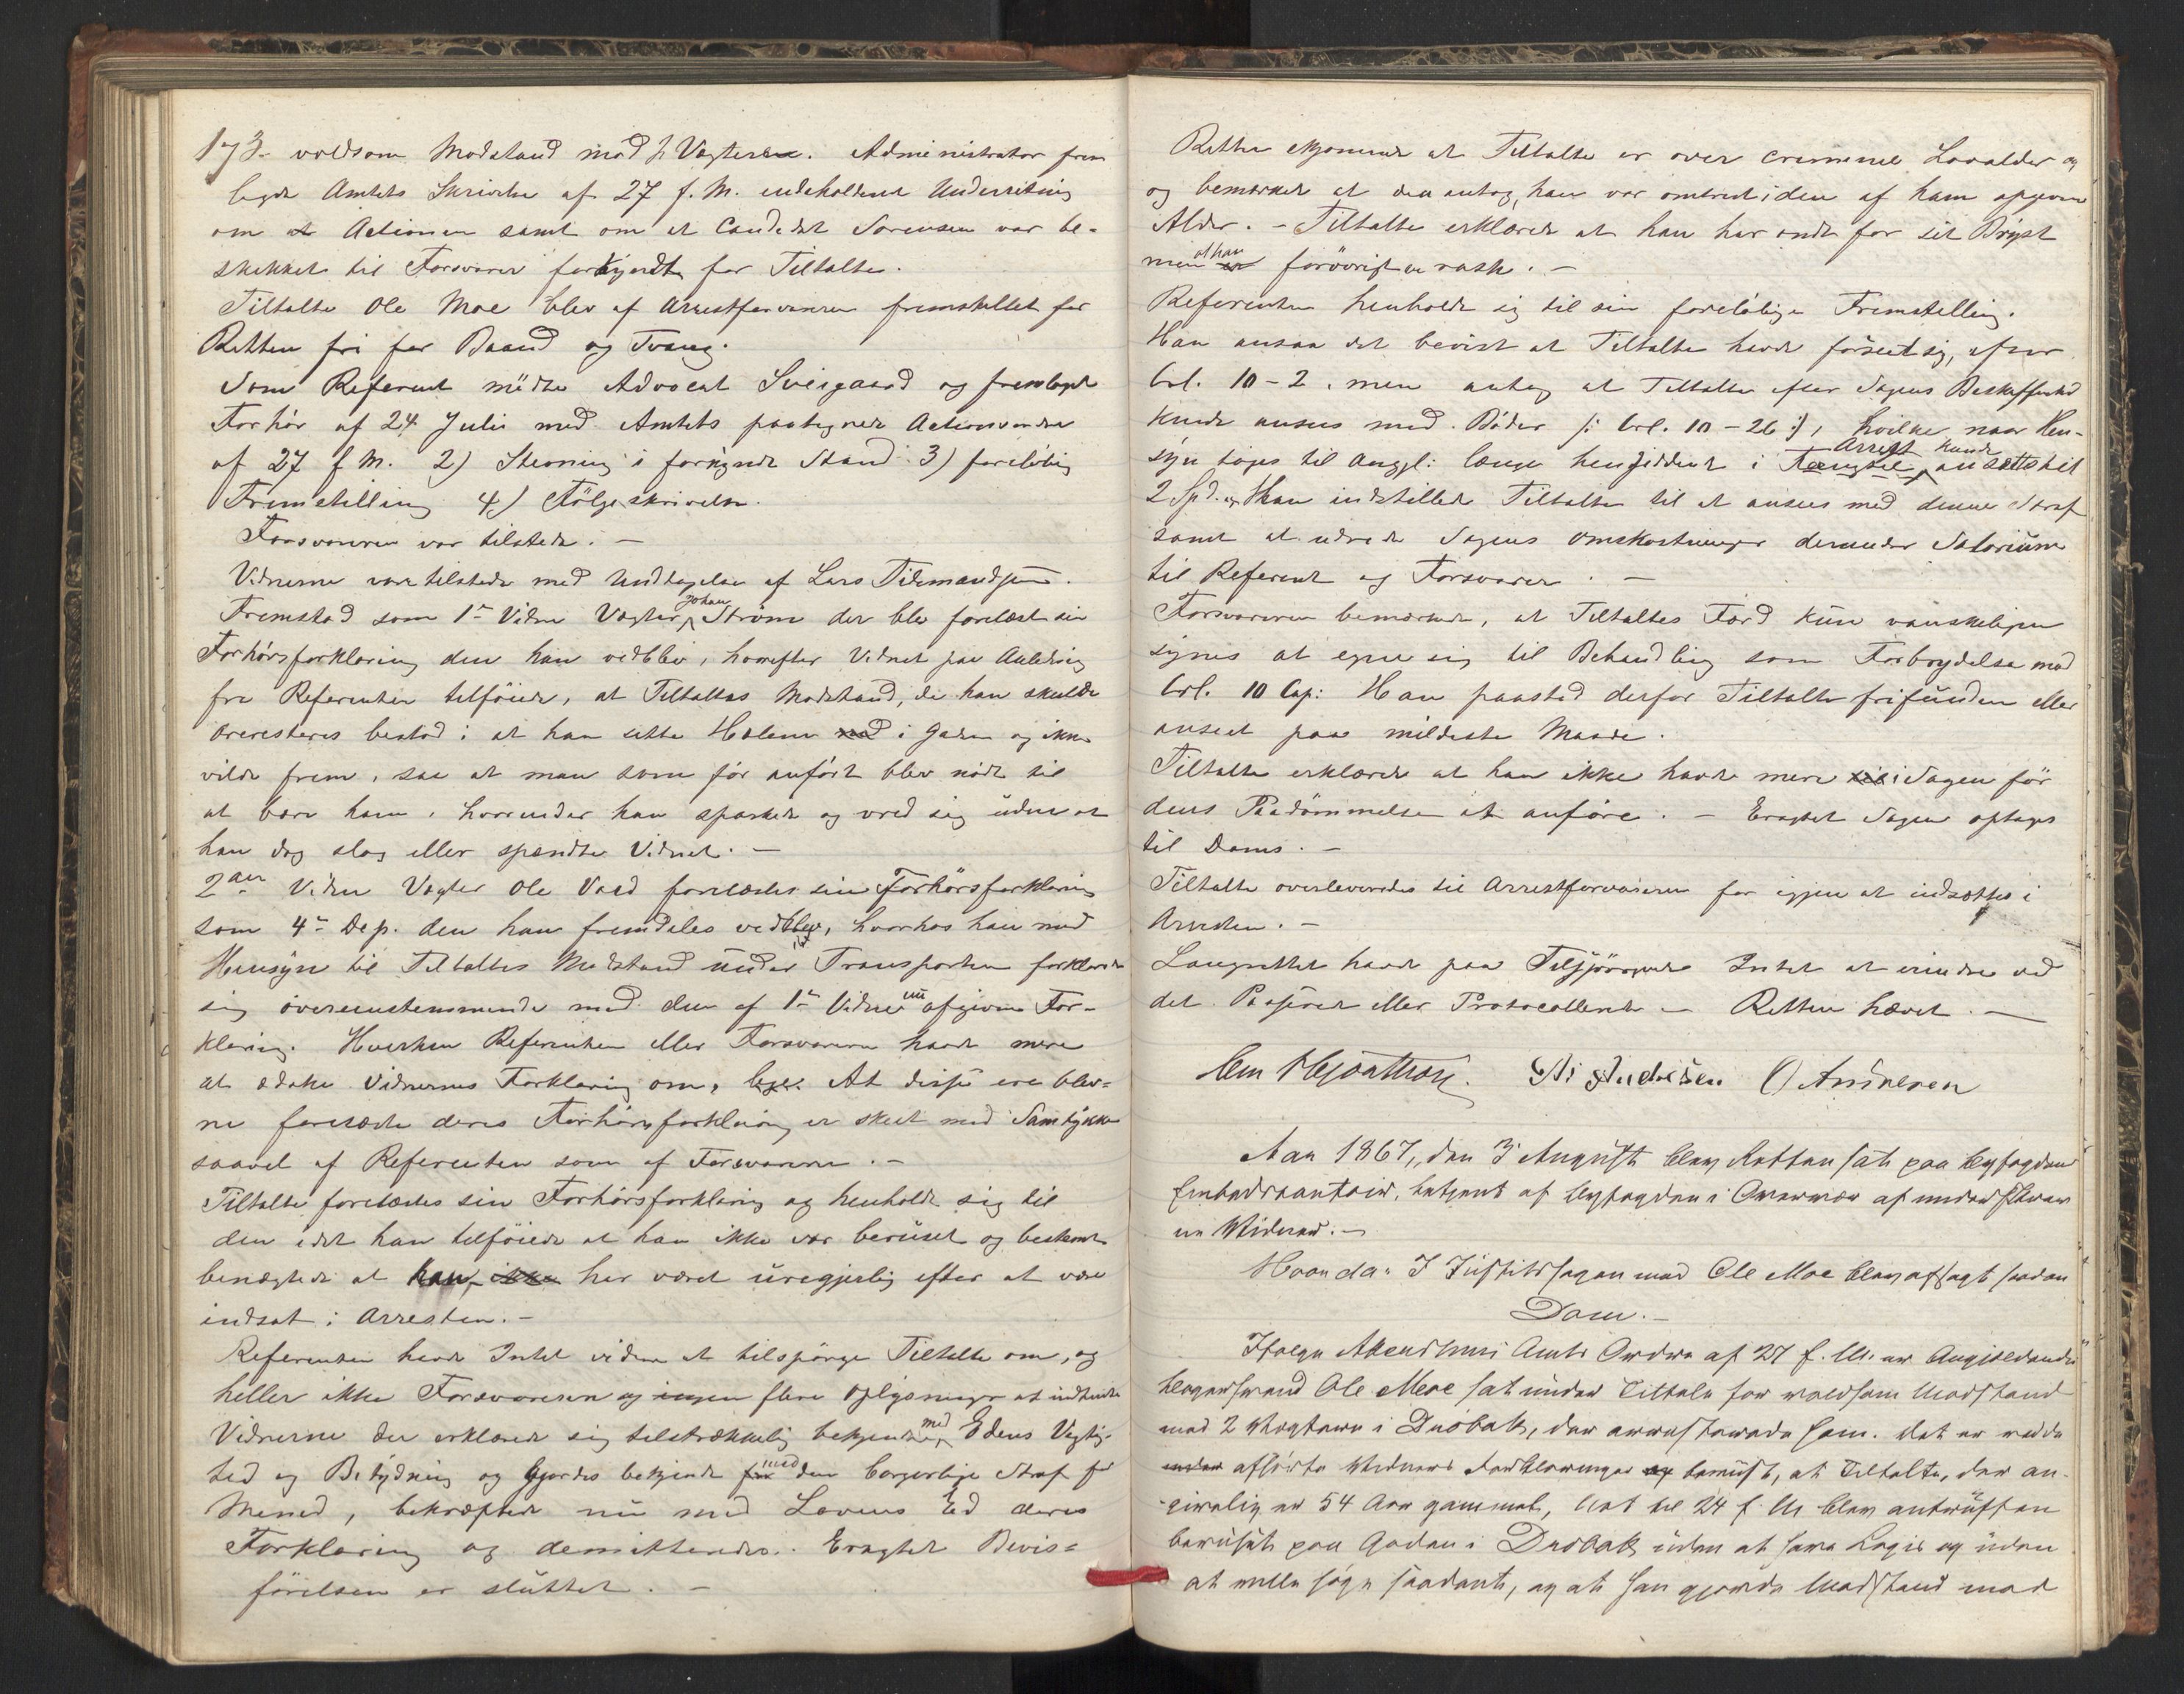 173. voldsom Modstand mod 2 Vægtere. Administrator frem
lagde Amtets Skrivelse af 27 f. M. indeholdende Underretning
om at Actionen samt om at Candidat Sörensen var be-
skikket til Forsvarer forkyndt for Tiltalte.
Tiltalte Ole Moe blev af Arrestforvareren fremstillet for
Retten fri for Baand og Tvang.
Som Referent mödte Advocat Sveigaard og fremlagde
Forhör af 24 Juli med Amtets paategnede Actionsordre
af 27 f M. 2) Stevning i forkyndt Stand 3) foreløbig
Fremstilling 4) Fölgeskrivelse.
Forsvareren var tilstede. –
Vidnerne vare tilstede med Undtagelse af Lars Tidemandsen.
Fremstod som 1te Vidne Vægter Johan Ström der blev forelæst sin
Forhörsforklaring den han vedblev, hvorefter Vidnet paa Anledning
fra Referenten tilföiede, at Tiltaltes Modstand, da han skulde
arresteres bestod i at han satte Hælene ned i Gaden og ikke
vilde frem, saa at man som för anfört blev nödt til
at bære ham, hvorunder han sparkede og vred sig uden at
han dog slog eller spændte Vidnet. –
2det Vidne Vægter Ole Vold forelæstes sin Forhörsforklaring
som 4de Dep. den han fremdeles vedblev, hvorhos han med
Hensyn til Tiltaltes Modstand under Transporten forklarede
sig overeensstemmende med den af 1te Vidne nu afgivne For-
klaring. Hverken Referenten eller Forsvareren havde mere
at æske Vidnernes Forklaring om. At disse ere blev-
ne forelæste deres Forhörsforklaring er skeet med Samtykke
saavel af Referenten som af Forsvareren. –
Tiltalte forelæstes sin Forhörsforklaring og henholdt sig til
den idet han tilföiede at han ikke var beruset og bestemt
benægtede at han ikke har været uregjerlig efter at være
indsat i Arresten. –
Referenten havde Intet videre at tilspörge Tiltalte om, og
heller ikke Forsvareren og ingen flere Oplysninger at indhente
Vidnerne der erklærede sig tilstrækkelig bekjendte med Edens Vigtig-
hed og Betydning og gjordes bekjendt med den borgerlige Straf for
Mened, bekræftede nu med Lovens Ed deres
Forklaring og demitteredes. Eragtet Bevis-
förelsen er sluttet. –
Retten skjønnede at Tiltalte er over criminel Lavalder og
og bemærkede at den antog, han var omtrent i den af ham opgivne
Alder. – Tiltalte erklærede at han har ondt for sit Bryst
men at han forövrigt er rask. –
Referenten henholdt sig til sin forelöbige Fremstilling.
Han ansaa det bevist at Tiltalte havde forseet sig,
Crl. 10 – 2, men antog at Tiltalte efter Sagens Beskaffenhed
kunde ansees med Böder /: Crl. 10 – 26 :/, hvilke naar Hen-
syn toges til Anggl: længe hensiddende i Fængsel Arrest kunde ansættes til
2 Spd. og Han indstillede Tiltalte til at ansees med denne Straf
samt at udrede Sagens Omkostninger derunder Salarium
til Referent og Forsvarer. –
Forsvareren bemærkede, at Tiltaltes Færd kun vanskeligen
synes at egne sig til Behandling som Forbrydelse mod
Crl. 10 Cap: Han paastod derfor Tiltalte frifunden eller
anseet paa mildeste Maade.
Tiltalte erklærede at han ikke havde mere i Sagen för
dens Paadömmelse at anföre. – Eragtet Sagen optages
til Doms. –
Tiltalte overleveredes til Arrestforvareren for igjen at indsættes i
Arresten. –
Laugrettet havde paa Tilspörgende Intet at erindre ved
det Passerede eller Protocollerede – Retten hævet. –
Andresen O Andresen
Aar 1867, den 3 August blev Retten sat paa Byfogdens
Embedscontoir, betjent af Byfogden i Overvær af underskrevne
Vidner. –
Hvor da: I Justitssagen mod Ole Moe blev afsagt saadan
Dom. –
Ifølge Akershuus Amts Ordre af 27 f. M. er Angjeldende
Ole Moe sat under Tiltale for voldsom Modstand
mod 2 Vægtere i Dröbak, der arresterede ham. Det er ved de
afhörte Vidners Forklaringer beviist, at Tiltalte, der an-
givelig er 54 Aar gammel, Nat til 24 f. M. blev antruffen
beruset paa Gaden i Dröbak uden at have Logis og uden
at ville søge saadant, og at han gjorde Modstand mod